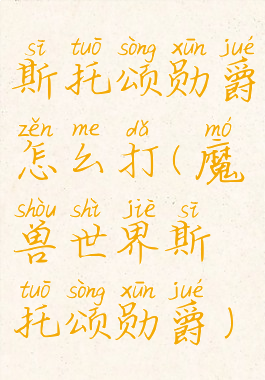 sī tuō sòng xūn jué
斯托颂勋爵
zěn me dǎ mó
怎么打(魔
shòu shì jiè sī
兽世界斯
tuō sòng xūn jué
托颂勋爵)